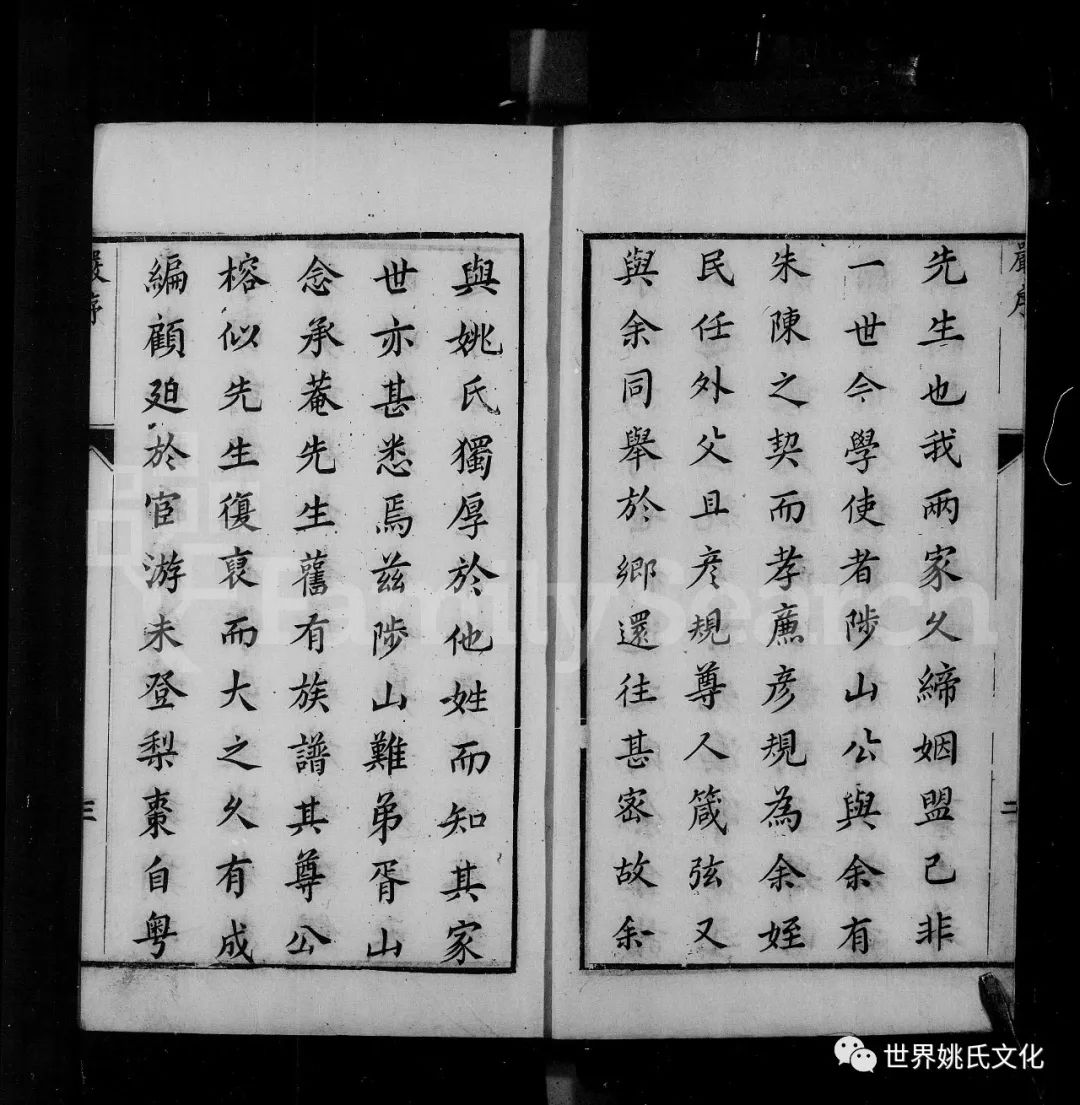 嚴序
先生也我兩家久締姻盟已非
一世今學使者陟山公與余有
朱陳之契而孝廉彥規為余姪
民任外父且彥規尊人箴弦又
與余同舉於鄉還往甚密故余
二
與姚氏獨厚於他姓而知其家
世亦甚悉焉茲陟山難弟胥山
念承菴先生舊有族譜其尊公
榕似先生復裒而大之久有成
編顧廹於宦游未登梨棗自粤
嚴序
三
FamilySearch
世界姚氏文化